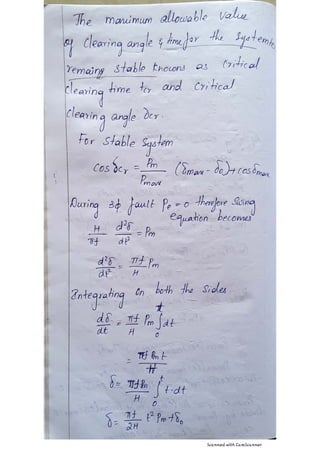 The maximum allowable value
of Clearing angle & time for the system to
remaing stable knowns as Critical
clearing time tcr and Critical
clearing angle δcr.
For stable System
cos δcr = Pm/Pmax (δmax - δ0) + cos δmax
During 3ϕ fault Pe = 0 therefore swing
equation becomes
H/πf d²δ/dt² = Pm
d²δ/dt² = πf/H Pm
Integrating on both the sides
dδ/dt = πf/H Pm ∫₀ᵗ dt
= πf Pm t/H
δ = πf Pm/H ∫₀ᵗ t.dt
δ = πf/2H t² Pm + δ0
Scanned with CamScanner